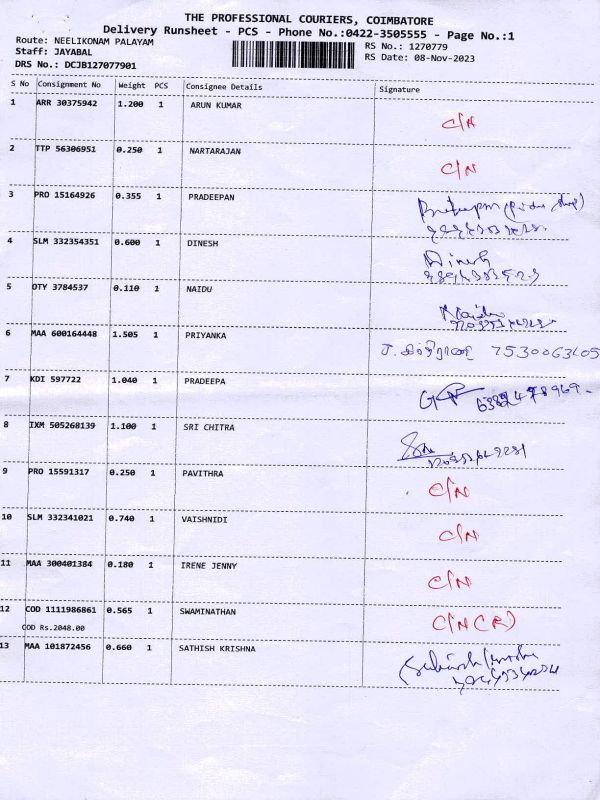 THE PROFESSIONAL COURIERS, COIMBATORE
Delivery Runsheet - PCS - Phone No.:0422-3505555 - Page No.:1
Route: NEELIKONAM PALAYAM RS No.: 1270779
Staff: JAYABAL RS Date: 08-Nov-2023
DRS No.: DCJB127077901
S No Consignment No Weight PCS Consignee Details Signature
1 ARR 30375942 1.200 1 ARUN KUMAR C/N
2 TTP 56306951 0.250 1 NARTARAJAN C/N
3 PRO 15164926 0.355 1 PRADEEPAN
4 SLM 332354351 0.600 1 DINESH Dinesh
5 OTY 3784537 0.110 1 NAIDU Naidu
6 MAA 600164448 1.505 1 PRIYANKA 7530063105
7 KDI 597722 1.040 1 PRADEEPA
8 IXM 505268139 1.100 1 SRI CHITRA
9 PRO 15591317 0.250 1 PAVITHRA C/N
10 SLM 332341021 0.740 1 VAISHNIDI C/N
11 MAA 300401384 0.180 1 IRENE JENNY C/N
12 COD 1111986861 0.565 1 SWAMINATHAN C/N (R)
COD Rs.2048.00
13 MAA 101872456 0.660 1 SATHISH KRISHNA